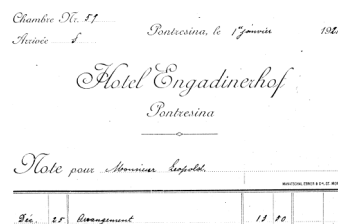 Chambre Nr. 51
Arrivée 5
Pontresina, le 1er janvier 192
Hotel Engadinerhof
Pontresina
Note pour Monsieur Leopold.
Déc. 25 Arrangement 13 80